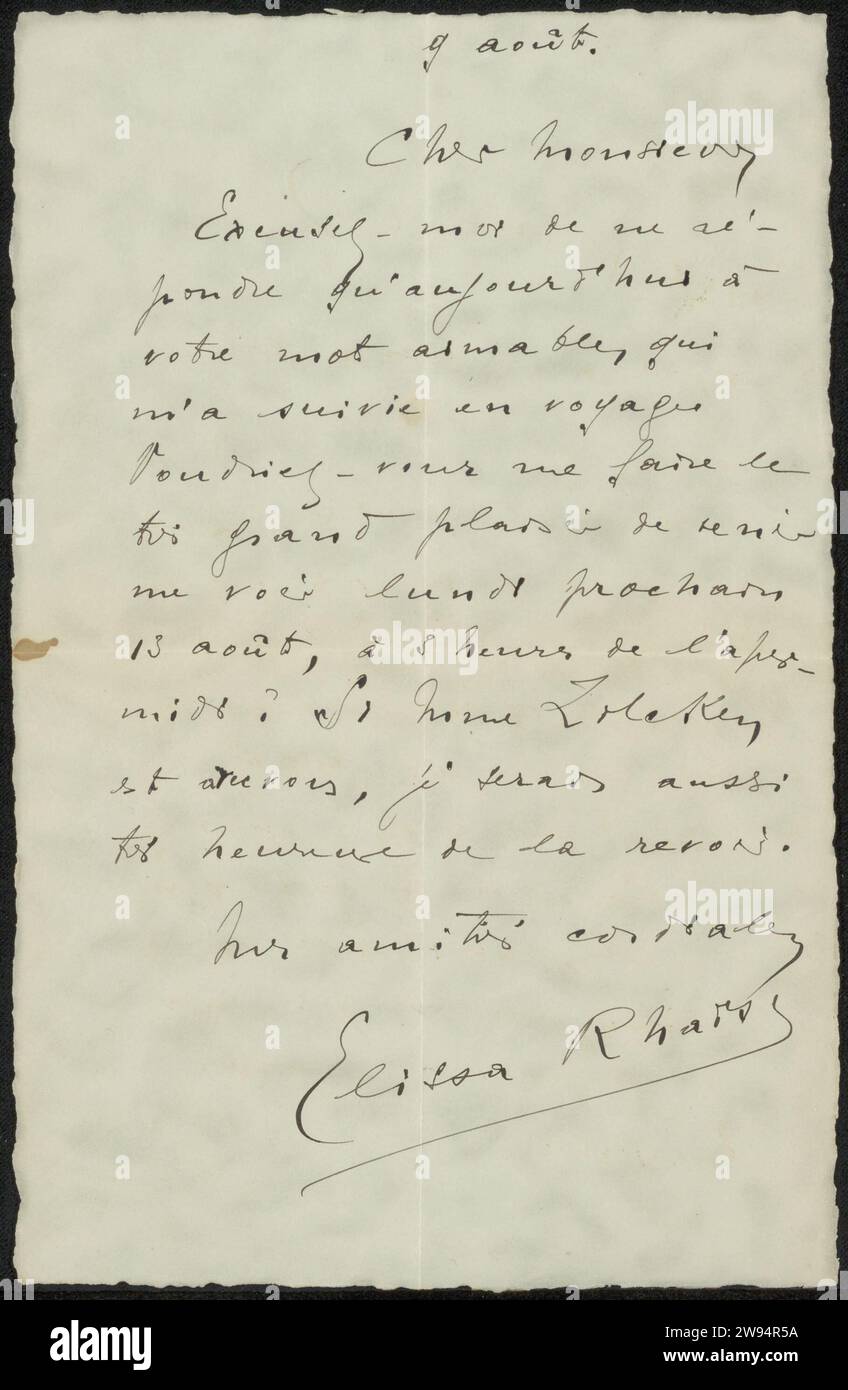 9 août.
Cher Monsieur
Excusez-moi de ne ré-
pondre qu'aujourd'hui à
votre mot aimable, qui
m'a suivie en voyage.
Voudriez-vous me faire le
très grand plaisir de venir
me voir lundi prochain
13 août, à 3 heures de l'après-
midi ? Si Mme Zilcken
est avec vous, je serais aussi
très heureuse de la revoir.
Mes amitiés cordiales
Elissa Rhaïs
alamy
alamy
alamy
alamy
alamy
Image ID: 2W94R5A
www.alamy.com